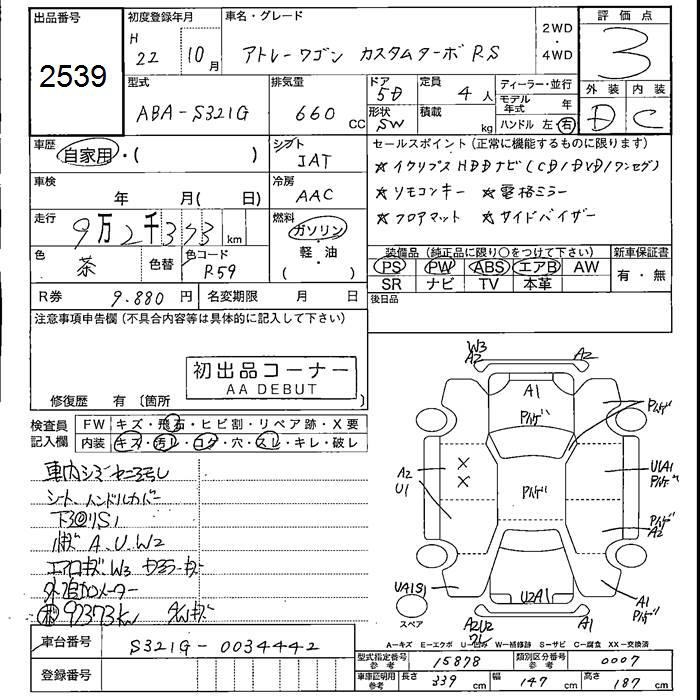 出品番号
2539
初度登録年月
H 22 10月
車名・グレード
アトレーワゴン カスタムターボ RS
2WD
・
4WD
評価点
3
外装 内装
D C
型式
ABA-S321G
排気量
660 CC
ドア
5D
形状
SW
定員
4人
積載
kg
ディーラー・並行
モデル年式 年
ハンドル 左・右
車歴
自家用・( )
シフト
IAT
セールスポイント(正常に機能するものに限ります)
☆イクリプスHDDナビ(CD/DVD/ワンセグ)
☆リモコンキー ☆電格ミラー
☆フロアマット ☆サイドバイザー
車検
年 月( 日)
冷房
AAC
走行
9万2千373km
燃料
ガソリン
軽・油
( )
色
茶
色替
色コード
R59
装備品(純正品に限り○をつけて下さい)
PS PW ABS エアB AW
SR ナビ TV 本革
新車保証書
有・無
R券 9.880円
名変期限 月 日
後日品
注意事項申告欄(不具合内容等は具体的に記入して下さい)
初出品コーナー
AA DEBUT
修復歴 有〔箇所 〕
検査員記入欄
FW キズ・飛石・ヒビ割・リペア跡・X要
内装 キズ・汚レ・コゲ・穴・スレ・キレ・破レ
シート、ハンドルカバー
A、U、W2
W3
外追加メーター
92373km
W3
A2
A2
A1
U1A1
A2
U1
A2
UA1S1
U2A1
A1
A2U2
A1
スペア
A-キズ E-エクボ U-凹み W-補修跡 S-サビ C-腐食 XX-交換済
車台番号 S321G-0034442
登録番号
型式指定番号 参考 15878
類別区分番号 参考 0007
車庫証明用 参考 長さ 339 cm 幅 147 cm 高さ 187 cm